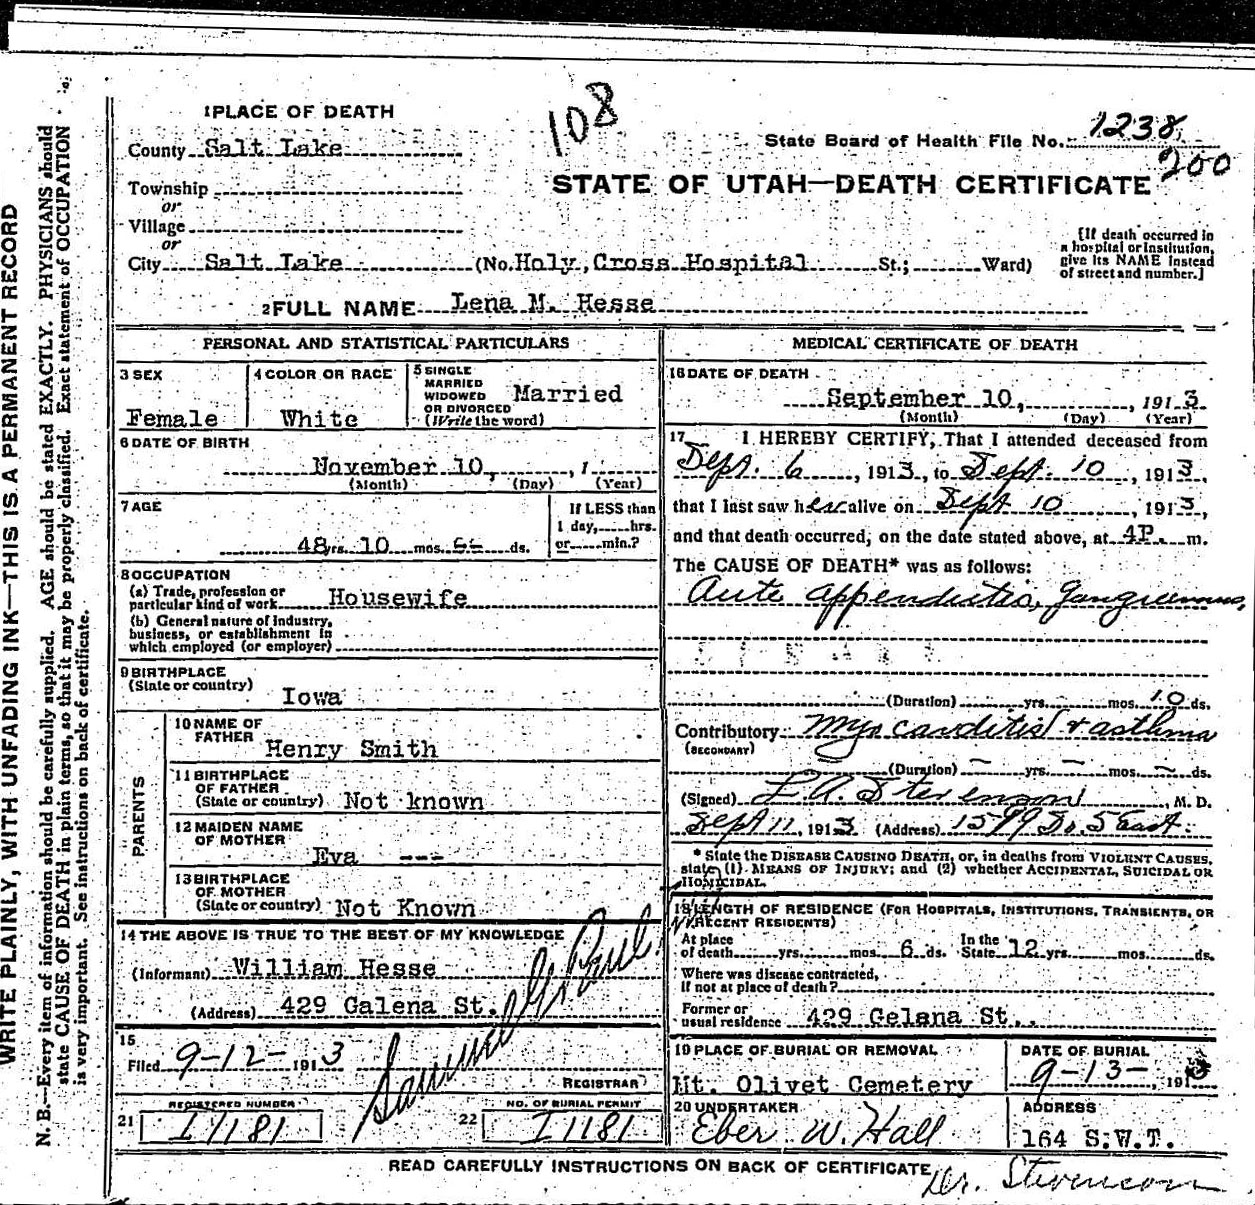 108
1238
200
1 PLACE OF DEATH
State Board of Health File No.
County Salt Lake
STATE OF UTAH—DEATH CERTIFICATE
Township
or
Village
or
City Salt Lake (No. Holy, Cross Hospital St.; Ward)
[If death occurred in
a hospital or institution,
give its NAME instead
of street and number.]
2 FULL NAME Lena M. Hesse
PERSONAL AND STATISTICAL PARTICULARS
3 SEX
Female
4 COLOR OR RACE
White
5 SINGLE
MARRIED
WIDOWED
OR DIVORCED
(Write the word)
Married
6 DATE OF BIRTH
November 10, , 1
(Month) (Day) (Year)
7 AGE
48 yrs. 10 mos. ds.
If LESS than
1 day, hrs.
or min.?
8 OCCUPATION
(a) Trade, profession or
particular kind of work Housewife
(b) General nature of industry,
business, or establishment in
which employed (or employer)
9 BIRTHPLACE
(State or country)
Iowa
PARENTS
10 NAME OF
FATHER
Henry Smith
11 BIRTHPLACE
OF FATHER
(State or country) Not known
12 MAIDEN NAME
OF MOTHER
Eva ---
13 BIRTHPLACE
OF MOTHER
(State or country) Not Known
14 THE ABOVE IS TRUE TO THE BEST OF MY KNOWLEDGE
(Informant) William Hesse
(Address) 429 Galena St.
15
Filed 9-12- 1913
Samuel G. Paul
REGISTRAR
21 REGISTERED NUMBER
I1181
22 NO. OF BURIAL PERMIT
I1181
MEDICAL CERTIFICATE OF DEATH
16 DATE OF DEATH
September 10, , 1913.
(Month) (Day) (Year)
17 I HEREBY CERTIFY, That I attended deceased from
Sept. 6, 1913, to Sept. 10, 1913,
that I last saw her alive on Sept 10, 1913,
and that death occurred, on the date stated above, at 4P. m.
The CAUSE OF DEATH* was as follows:
Aute appendicitis, Gangrenous,
(Duration) yrs. mos. 10 ds.
Contributory Myocarditis + asthma
(SECONDARY)
(Duration) — yrs. — mos. — ds.
(Signed) L. A. Stevenson, M. D.
Sept 11, 1913 (Address) 1599 So. 5 East.
* State the DISEASE CAUSING DEATH, or, in deaths from VIOLENT CAUSES,
state (1) MEANS OF INJURY; and (2) whether ACCIDENTAL, SUICIDAL OR
HOMICIDAL.
18 LENGTH OF RESIDENCE (FOR HOSPITALS, INSTITUTIONS, TRANSIENTS, OR
RECENT RESIDENTS)
At place
of death yrs. mos. 6 ds.
In the
State 12 yrs. mos. ds.
Where was disease contracted,
If not at place of death?
Former or
usual residence 429 Gelena St..
19 PLACE OF BURIAL OR REMOVAL
Mt. Olivet Cemetery
DATE OF BURIAL
9-13-, 1913
20 UNDERTAKER
Eber W. Hall
ADDRESS
164 S.W.T.
READ CAREFULLY INSTRUCTIONS ON BACK OF CERTIFICATE
Dr. Stevenson
WRITE PLAINLY, WITH UNFADING INK—THIS IS A PERMANENT RECORD
N. B.—Every item of information should be carefully supplied. AGE should be stated EXACTLY. PHYSICIANS should
state CAUSE OF DEATH in plain terms, so that it may be properly classified. Exact statement of OCCUPATION
is very important. See instructions on back of certificate.